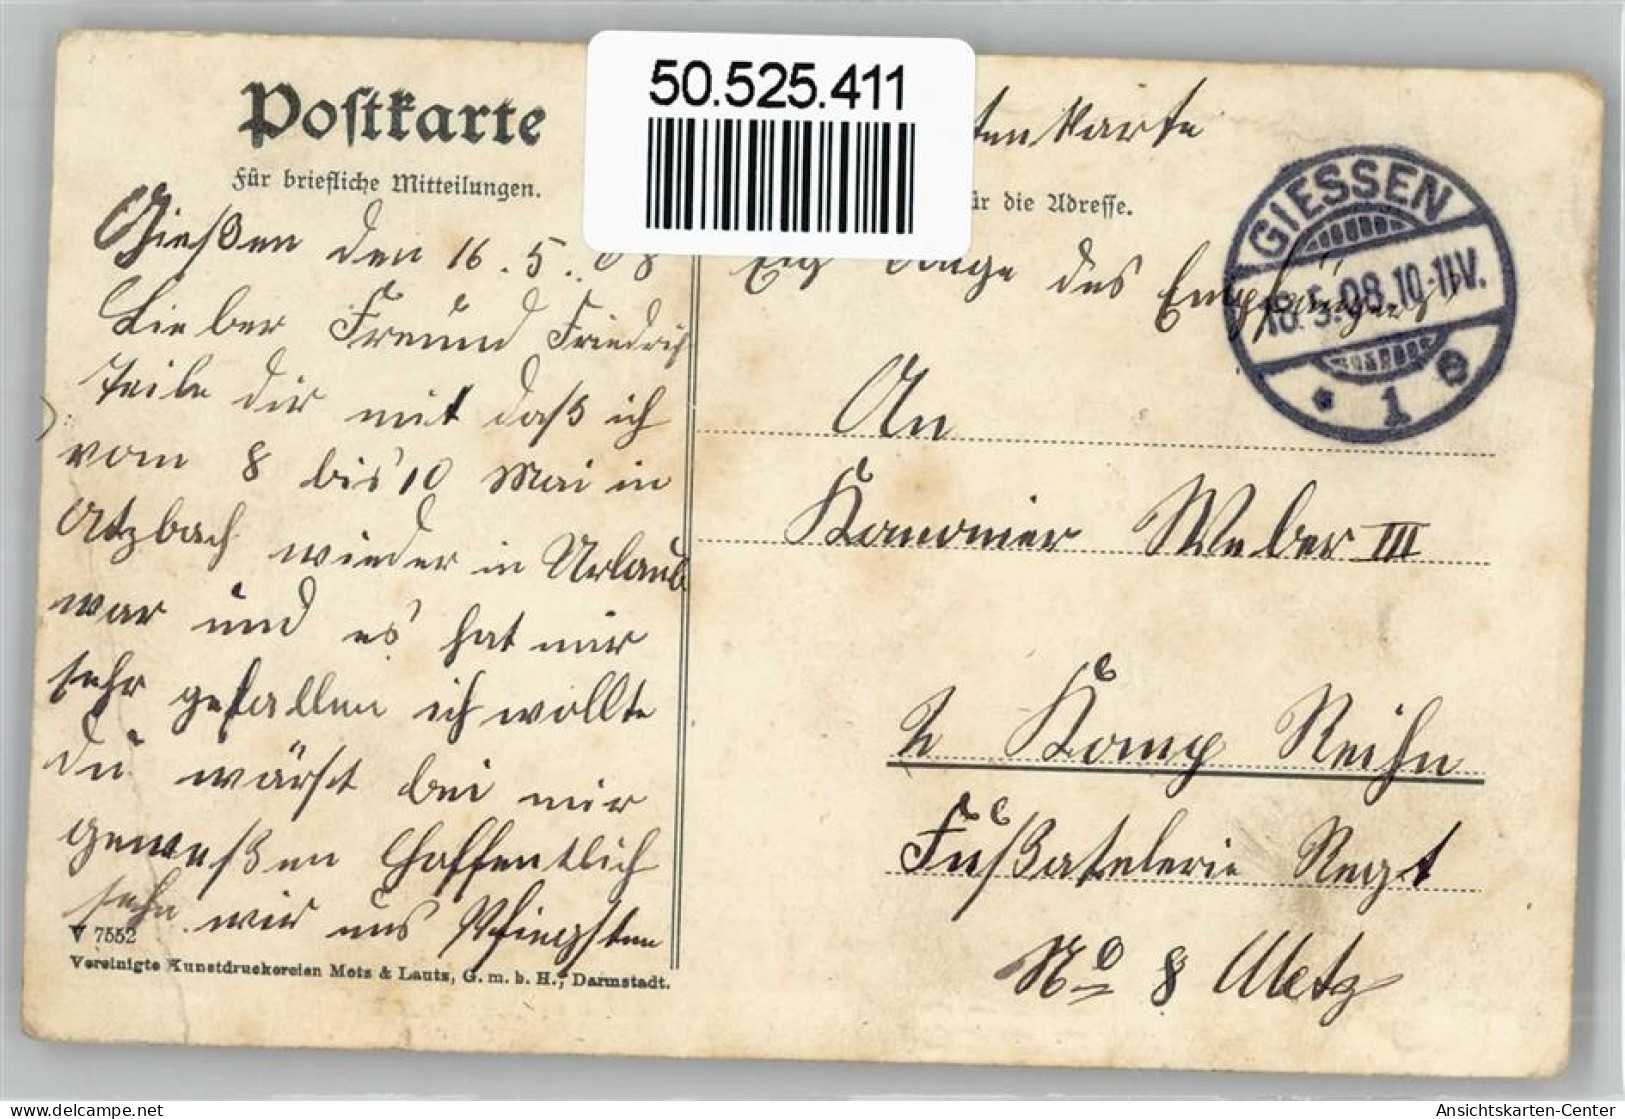 50.525.411
Postkarte
Für briefliche Mitteilungen.
Gießen den 16. 5. 08
Lieber Freund Friedrich
teile dir mit daß ich
vom 8 bis 10 Mai in
Atzbach wieder in Urlaub
war und es hat mir
sehr gefallen ich wollte
du wärst bei mir
geweßen Hoffentlich
sehn wir uns Pfingsten
V 7552
Vereinigte Kunstdruckereien Metz & Lautz, G. m. b. H., Darmstadt.
tenkarte
ür die Adresse.
Eig des Empfängers
GIESSEN
18.5.08.10-11V.
* 1 e
An
Kanonier Weber III
2 Komp Reihn
Fußatelerie Regt
No 8 Metz
Ansichtskarten-Center